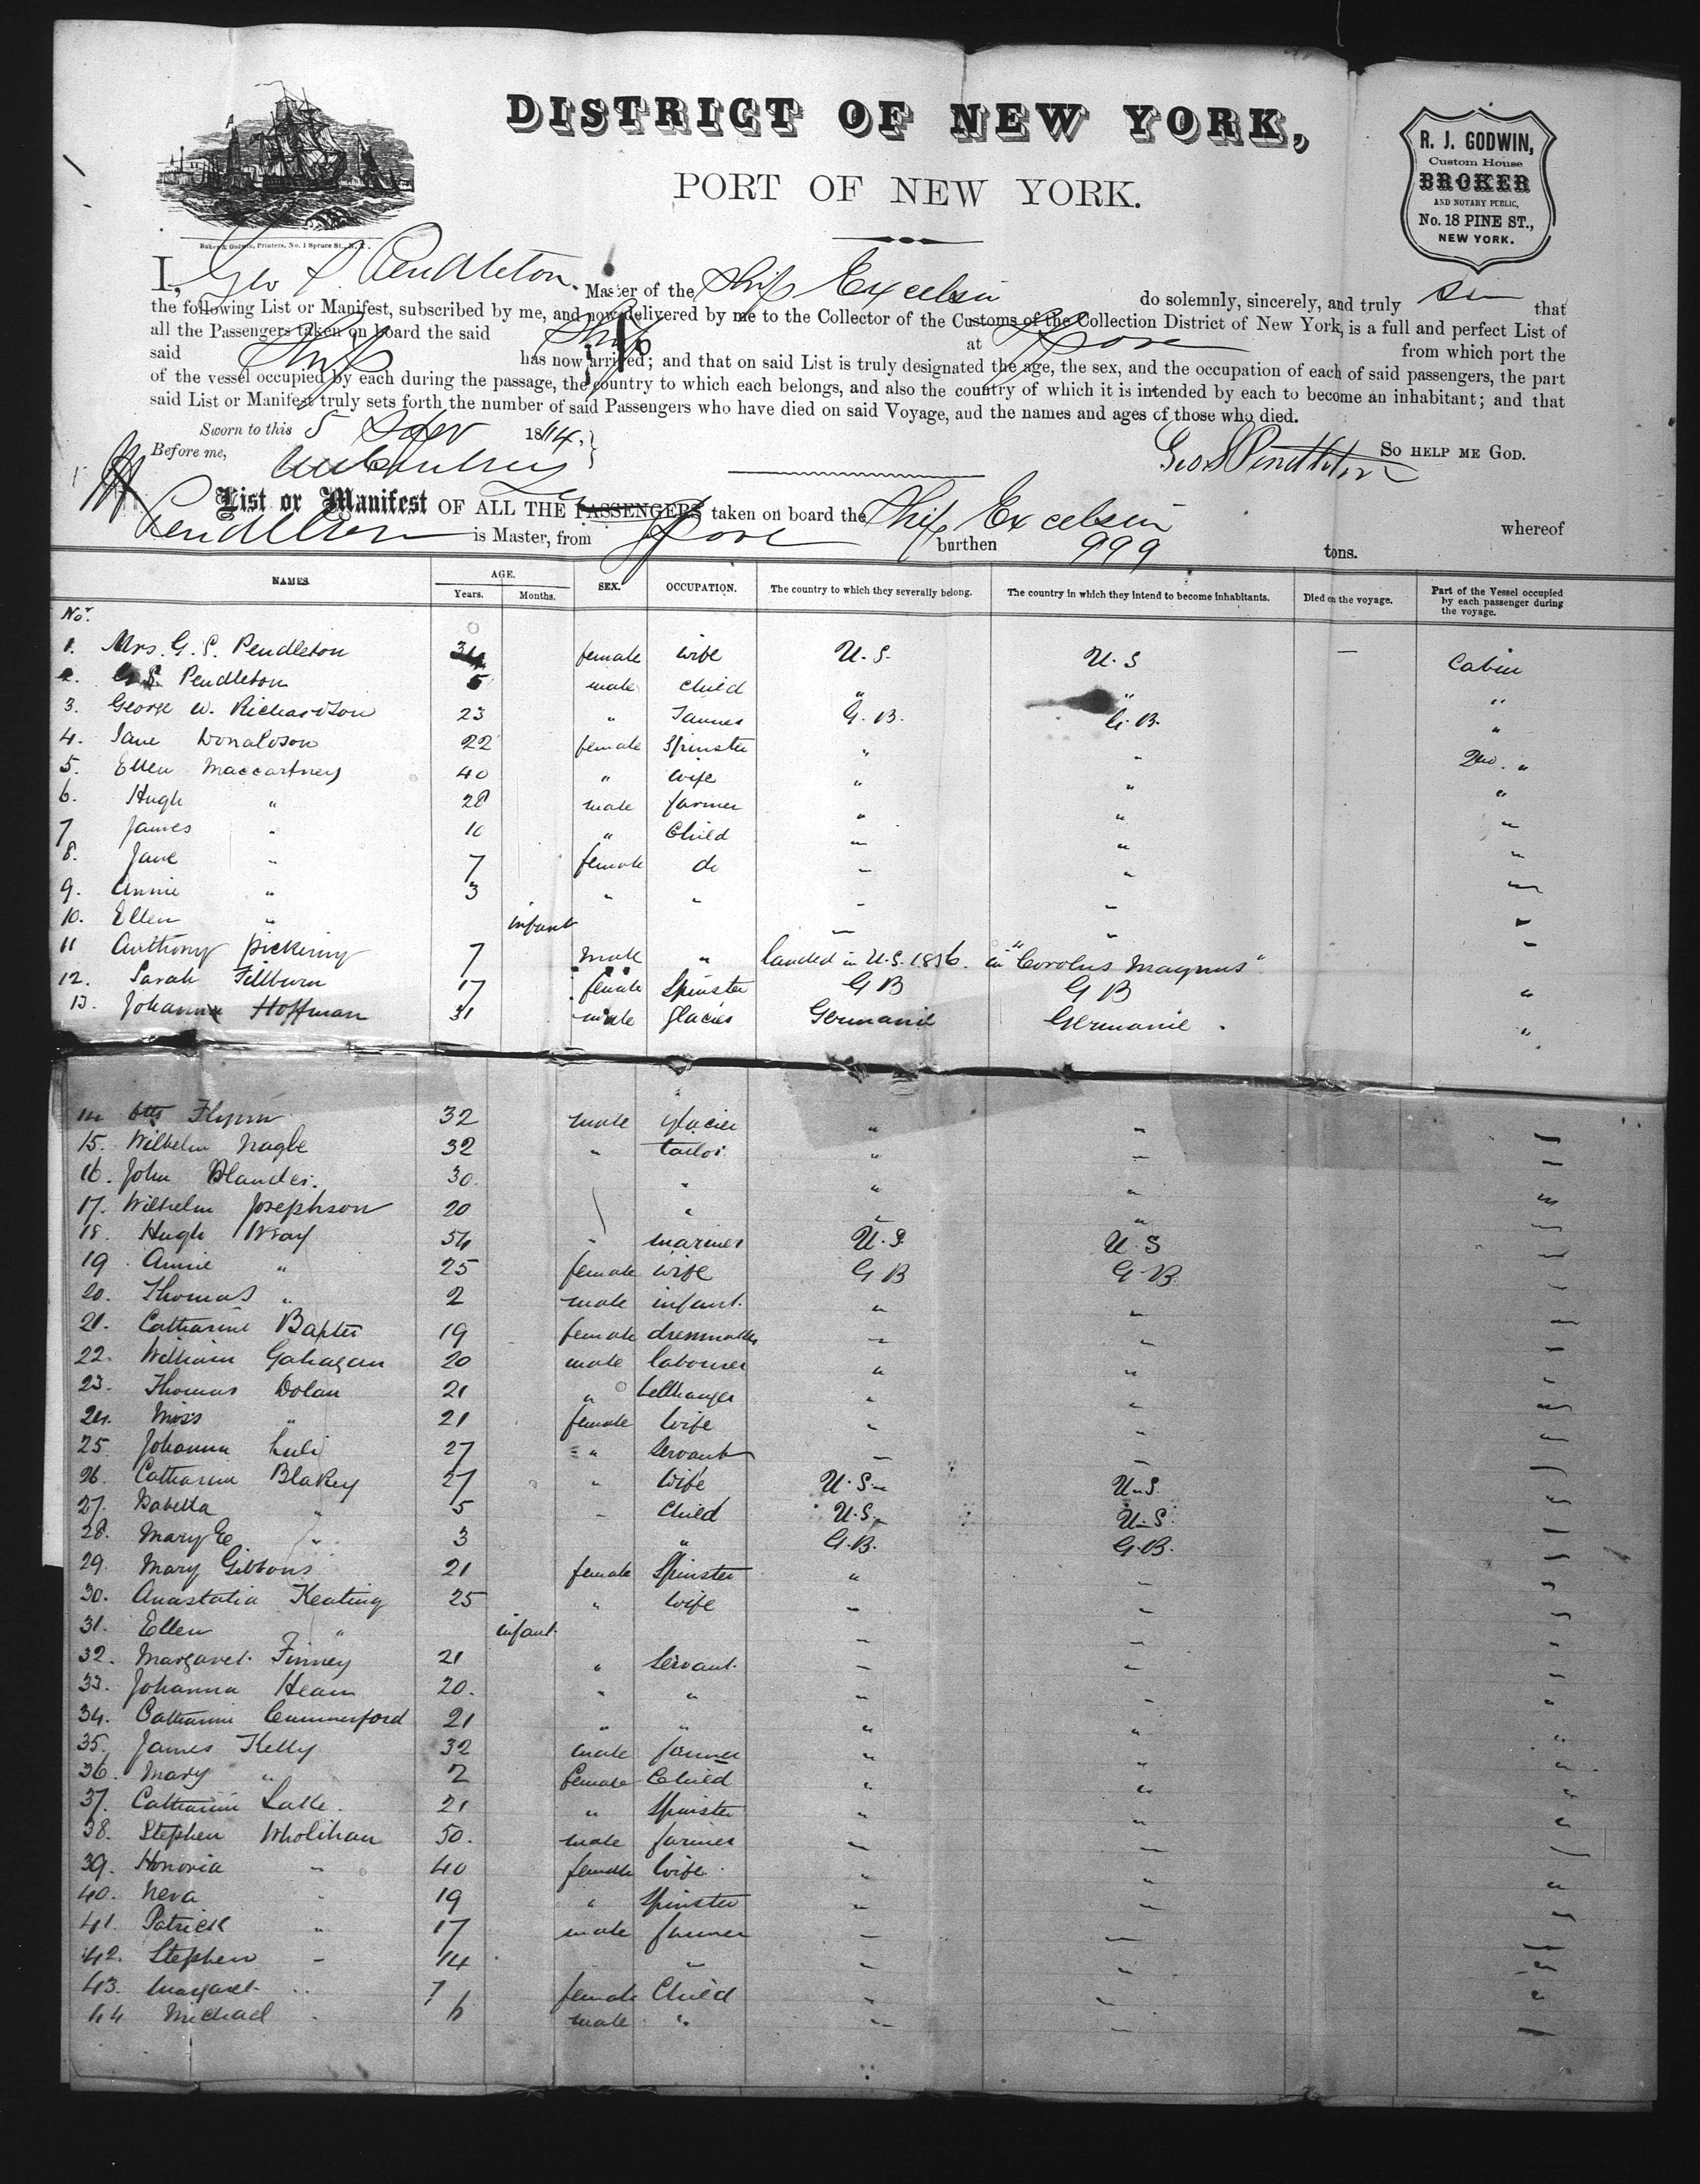 DISTRICT OF NEW YORK,
PORT OF NEW YORK.
R. J. GODWIN,
Custom House
BROKER
AND NOTARY PUBLIC,
No. 18 PINE ST.,
NEW YORK.
Baker & Godwin, Printers, No. 1 Spruce St., N. Y.
I, Geo S. Pendleton. Master of the Ship Excelsior do solemnly, sincerely, and truly that
the following List or Manifest, subscribed by me, and now delivered by me to the Collector of the Customs of the Collection District of New York, is a full and perfect List of
all the Passengers taken on board the said Ship at from which port the
said Ship has now arrived; and that on said List is truly designated the age, the sex, and the occupation of each of said passengers, the part
of the vessel occupied by each during the passage, the country to which each belongs, and also the country of which it is intended by each to become an inhabitant; and that
said List or Manifest truly sets forth the number of said Passengers who have died on said Voyage, and the names and ages of those who died.
Sworn to this 5 18
Before me,
Geo S Pendleton SO HELP ME GOD.
List or Manifest OF ALL THE PASSENGERS taken on board the Ship Excelsior whereof
Pendleton is Master, from burthen 999 tons.
NAMES. AGE. Years. Months. SEX. OCCUPATION. The country to which they severally belong. The country in which they intend to become inhabitants. Died on the voyage. Part of the Vessel occupied by each passenger during the voyage.
No.
1. Mrs. G. S. Pendleton 34 female wife U. S. U. S — Cabin
2. G S Pendleton 5 male child " " "
3. George W. Richardson 23 " G. B. G. B. "
4. Jane Donaldson 22 female Spinster " " "
5. Ellen Maccartney 40 " wife " "
6. Hugh " 28 male farmer " " "
7 James " 10 " Child " " "
8. Jane " 7 female do " " "
9. Annie " 3 " " " " "
10. Ellen " infant " " "
11 Anthony Pickering 7 male " landed in U.S. 1856. in "Carolus Magnus" "
12. Sarah Tillburn 17 female Spinster G B G B "
13. Johann Hoffman 31 male glacier Germanie Germanie. "
14 Flynn 32 male glacier " " "
15. Wilhelm Nagle 32 " tailor " " "
16. John 30. " " " "
17. Wilhelm Josephson 20 " " " "
18. Hugh Wray 54 " mariner U. S. U. S "
19. Annie " 25 female wife G B G B. "
20. Thomas " 2 male infant. " " "
21. Catharine Baxter 19 female dressmaker " " "
22. William Gahagan 20 male labourer " " "
23. Thomas Dolan 21 " bellhanger " " "
24. Miss " 21 female wife " " "
25. Johanna 27 " Servant " " "
26. Catharine Blakey 27 " wife U. S. U. S. "
27. Isabella " 5 " Child U. S. U. S. "
28. Mary E " 3 " G. B. G. B. "
29. Mary Gibbons 21 female Spinster " " "
30. Anastatia Keating 25 " wife " " "
31. Ellen " infant " " "
32. Margaret Finney 21 " Servant. " " "
33. Johanna Hearn 20. " " " " "
34. Catharine Cummerford 21 " " " " "
35. James Kelly 32 male farmer " " "
36. Mary " 2 female Child " " "
37. Catharine 21 " Spinster " " "
38. Stephen Wholihan 50. male farmer " " "
39. Honoria " 40 female wife. " " "
40. Nera " 19 " Spinster " " "
41. Patrick " 17 male farmer " " "
42. Stephen " 14 " " " "
43. Margaret " 7 female Child " " "
44 Michael " 6 male " " " "